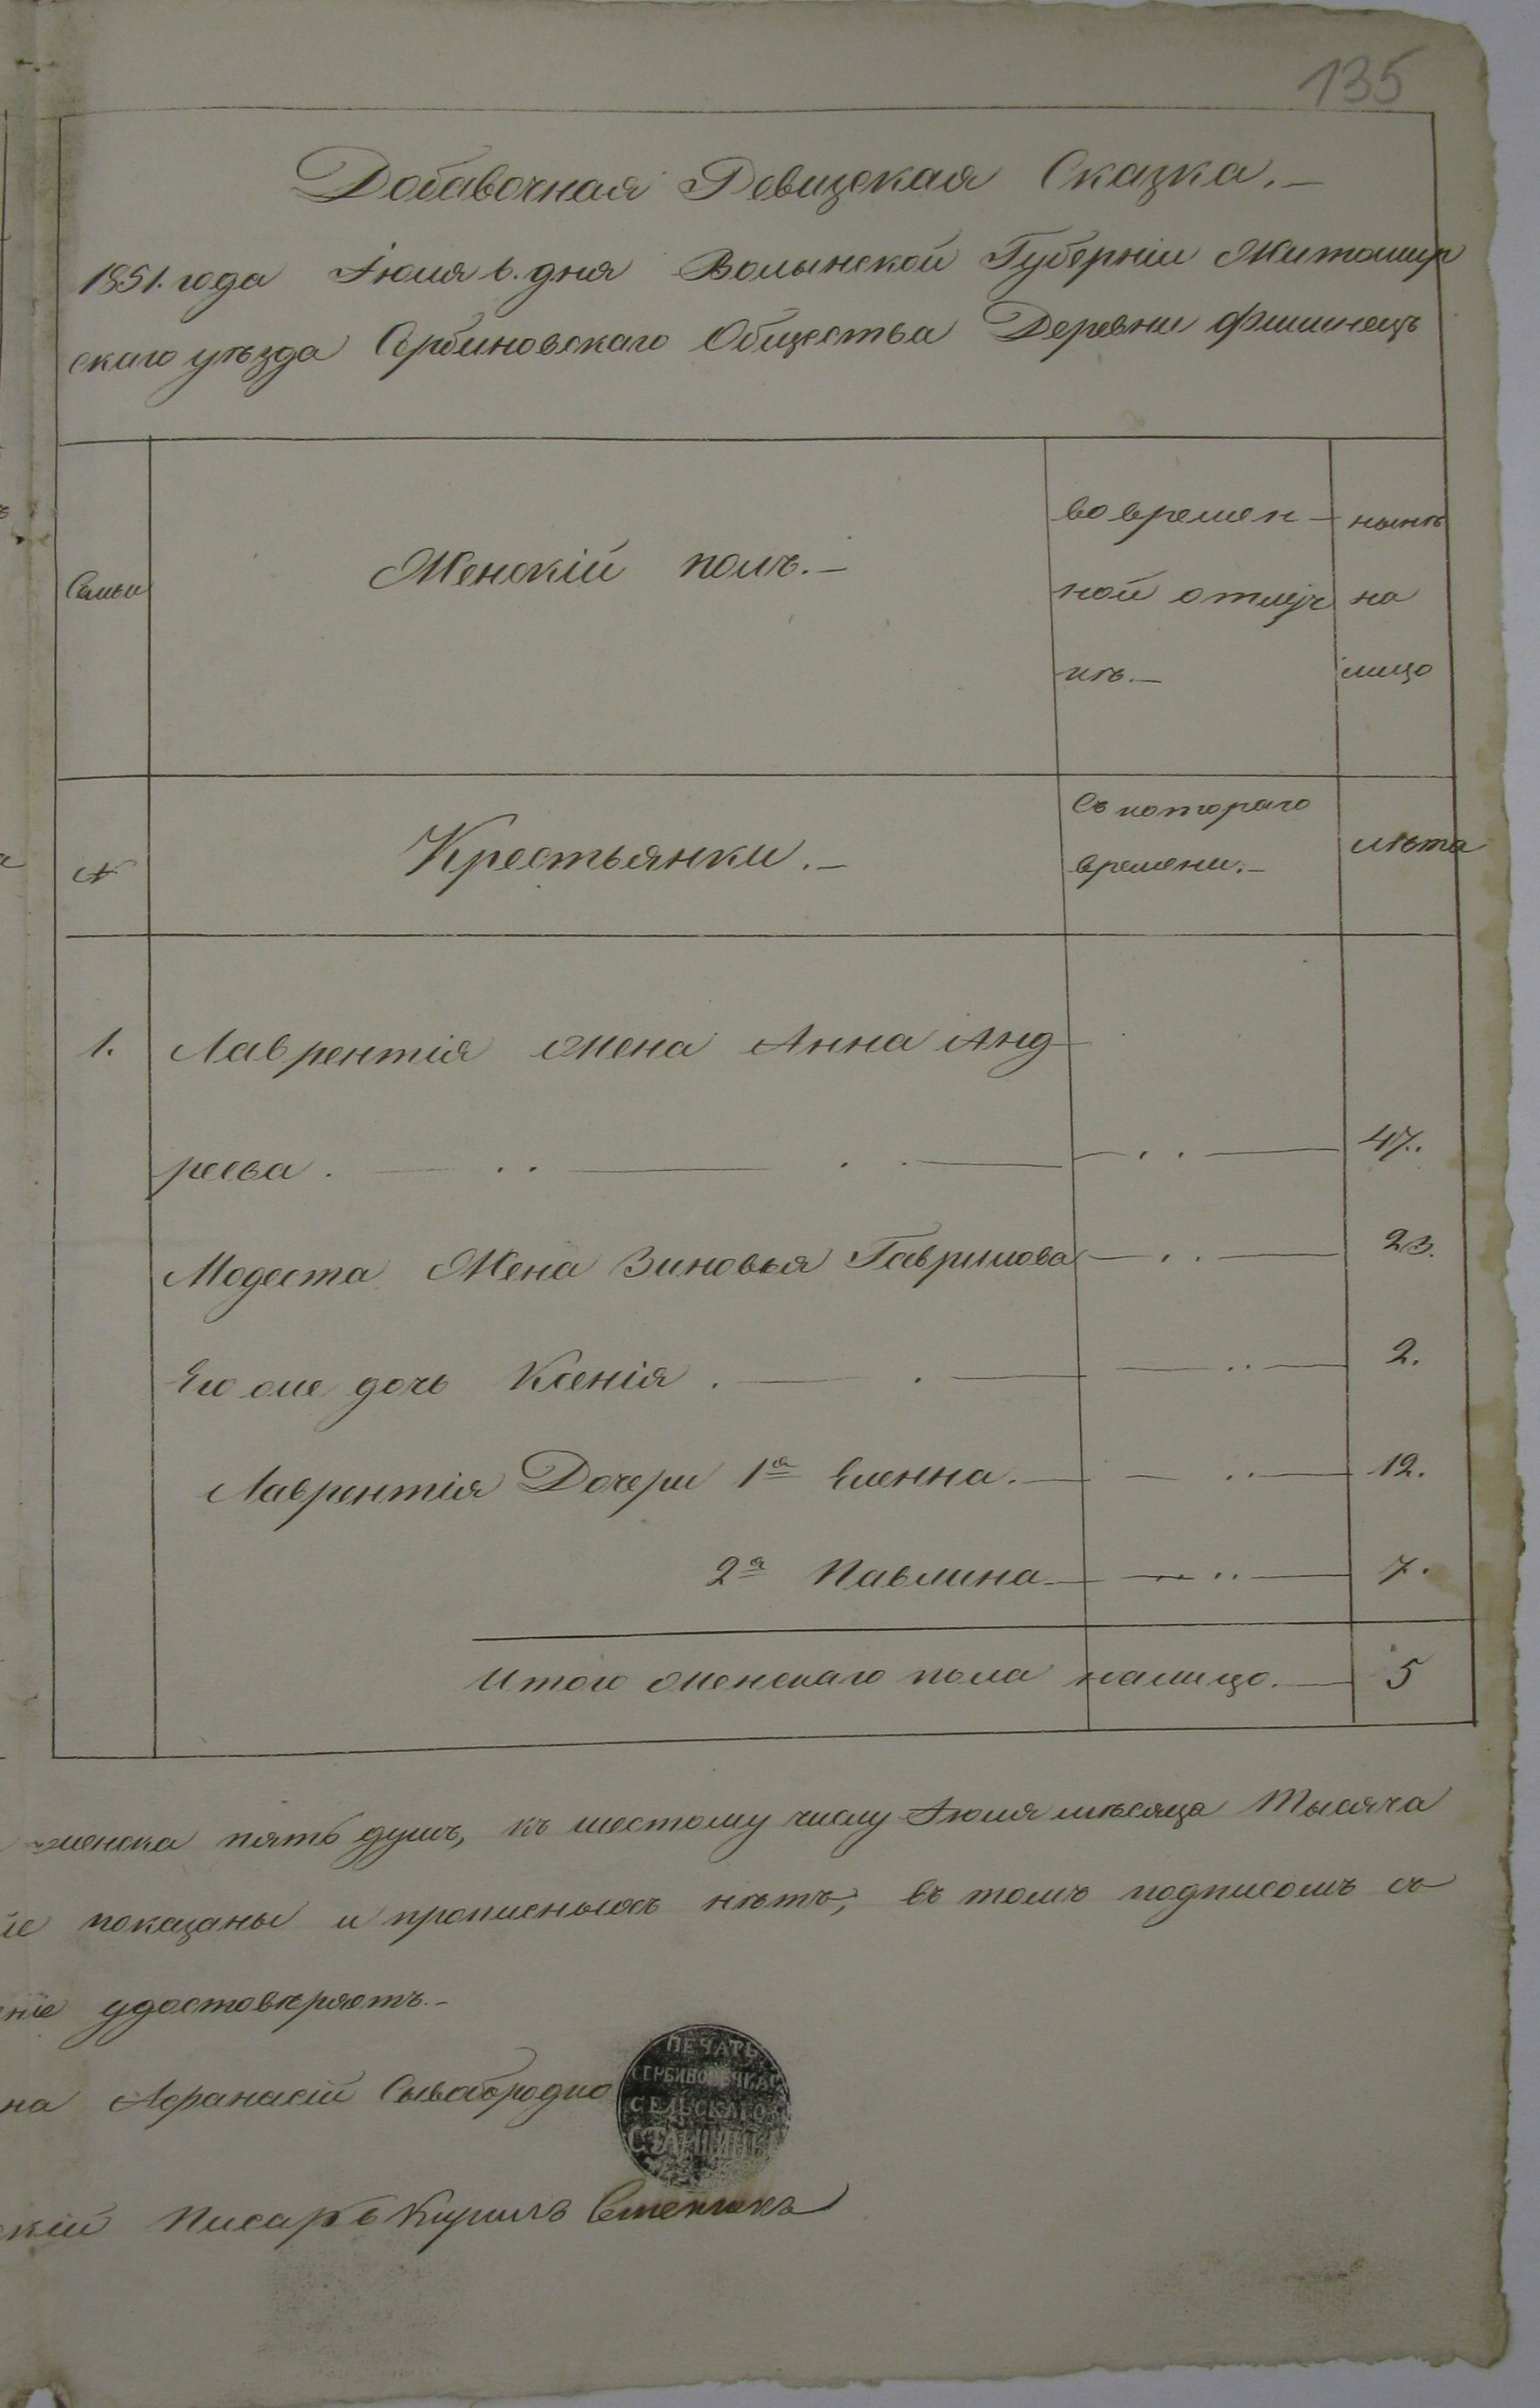 135
Добавочная Ревизская Сказка.—
1851. года Іюля 6. дня Волынской Губерніи Житомир
скаго уѣзда Сербиновскаго Общества Деревни Филинецъ
Семьи
Женскій полъ.—
во времен-
ной отлуч
кѣ.—
нынѣ
на
лицо
№
Крестьянки.—
Съ котораго
времени.—
лѣта
1. Лаврентія жена Анна Анд
реева. — .. — . . — — . . — 47.
Модеста Жена Зиновья Гаврилова — . . — 23.
Его же дочь Ксенія . — . — — .. — 2.
Лаврентія Дочери 1я Еленна. — — .. — 12.
2я Павлина — — .. — 7.
Итого женскаго пола налицо. — 5
женска пять душъ, къ шестому числу Іюля мѣсяца Тысяча
показаны и прописныхъ нѣтъ, въ томъ подписомъ съ
ніе удостовѣряетъ.—
на Афанасій Сывобродко
ПЕЧАТЬ
СЕРБИНОВСКАГ
СЕЛЬСКАГО
СТАРШИНЫ
скій Писарь Кирилъ